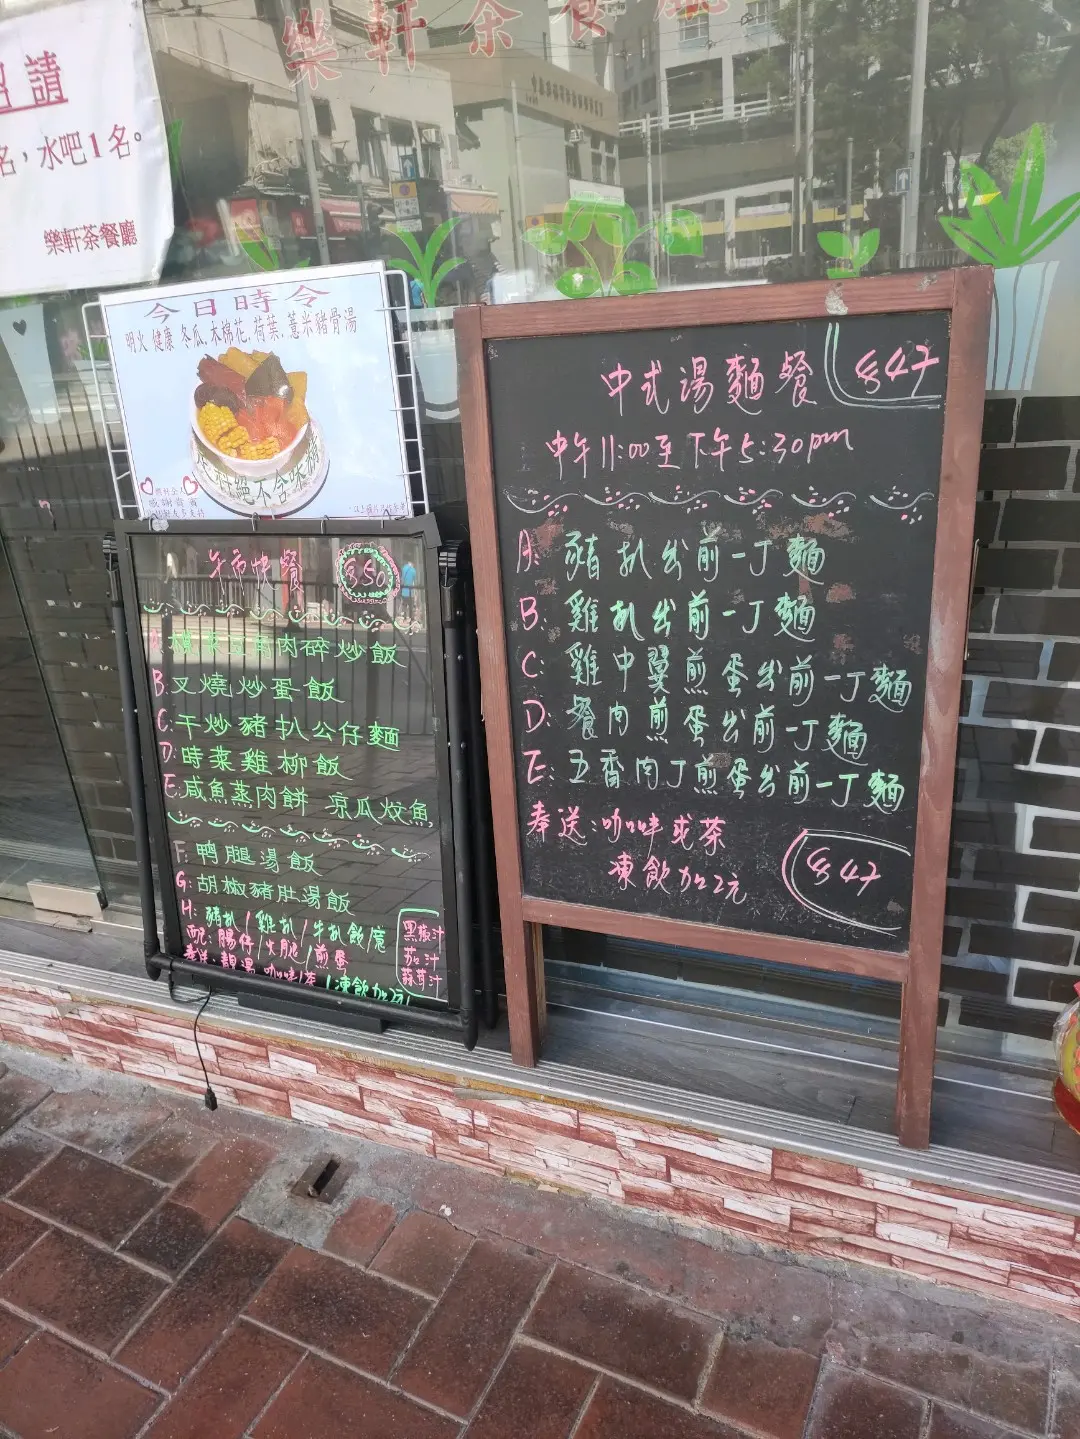 樂軒茶餐廳
招請
名,水吧1名。
樂軒茶餐廳
今日時令
明火 健康 冬瓜,木棉花,荷葉,薏米豬骨湯
絕不含味精
午市快餐 $50
豆腐肉碎炒飯
B:叉燒炒蛋飯
C:干炒豬扒公仔麵
D:時菜雞柳飯
E:咸魚蒸肉餅 凉瓜炆魚
F:鸭腿湯飯
G:胡椒豬肚湯飯
H:豬扒/雞扒/牛扒飯/意
配:腸仔/火腿/煎蛋
奉送:靚湯 咖啡/茶/凍飲加2元
黑椒汁
茄汁
蒜茸汁
中式湯麵餐 $47
中午11:00至下午5:30pm
A:豬扒出前一丁麵
B:雞扒出前一丁麵
C:雞中翼煎蛋出前一丁麵
D:餐肉煎蛋出前一丁麵
E:五香肉丁煎蛋出前一丁麵
奉送:咖啡或茶
凍飲加2元
$47